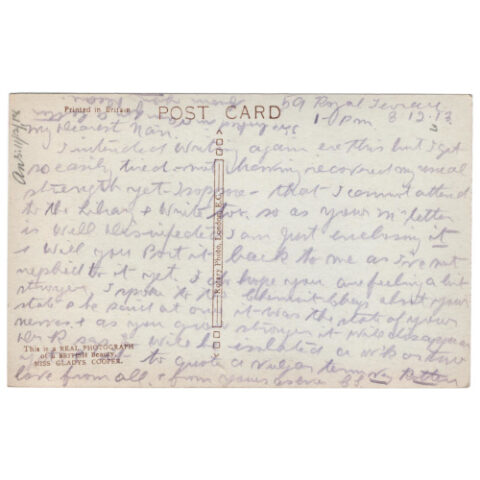 Printed in Britain
POST CARD
59 Royal Terrace
1-0 pm 8.12.13
My dearest Nan.
I intended writing again ere this but I get
so easily tired not having recovered my usual
strength yet I suppose - that I cannot attend
to the Library & Write too. so as your m letter
is well I am just enclosing it
& will you Post it back to me as I've not
replied to it yet. I do hope you are feeling a bit
stronger, I spoke to the about your
state & he said at once it was the state of your
nerves & as you grow stronger it will disappear
to quote a vulgar term
love from all & from yours as ever
Rotary Photo, London, E.C.
This is a REAL PHOTOGRAPH
of a British Beauty
MISS GLADYS COOPER.